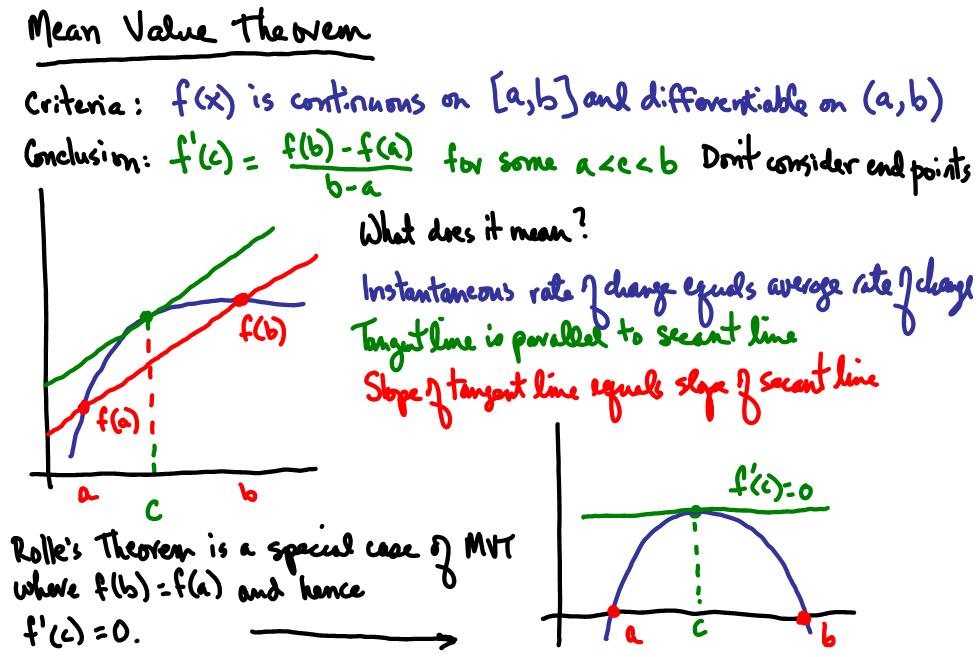 Mean Value Theorem
Criteria: f(x) is continuous on [a,b] and differentiable on (a,b)
Conclusion: f'(c) = f(b) - f(a) / b-a for some a<c<b Don't consider end points
What does it mean?
Instantaneous rate of change equals average rate of change
Tangent line is parallel to secant line
Slope of tangent line equals slope of secant line
f(b)
f(a)
a
c
b
f'(c)=0
a
c
b
Rolle's Theorem is a special case of MVT
where f(b)=f(a) and hence
f'(c)=0.